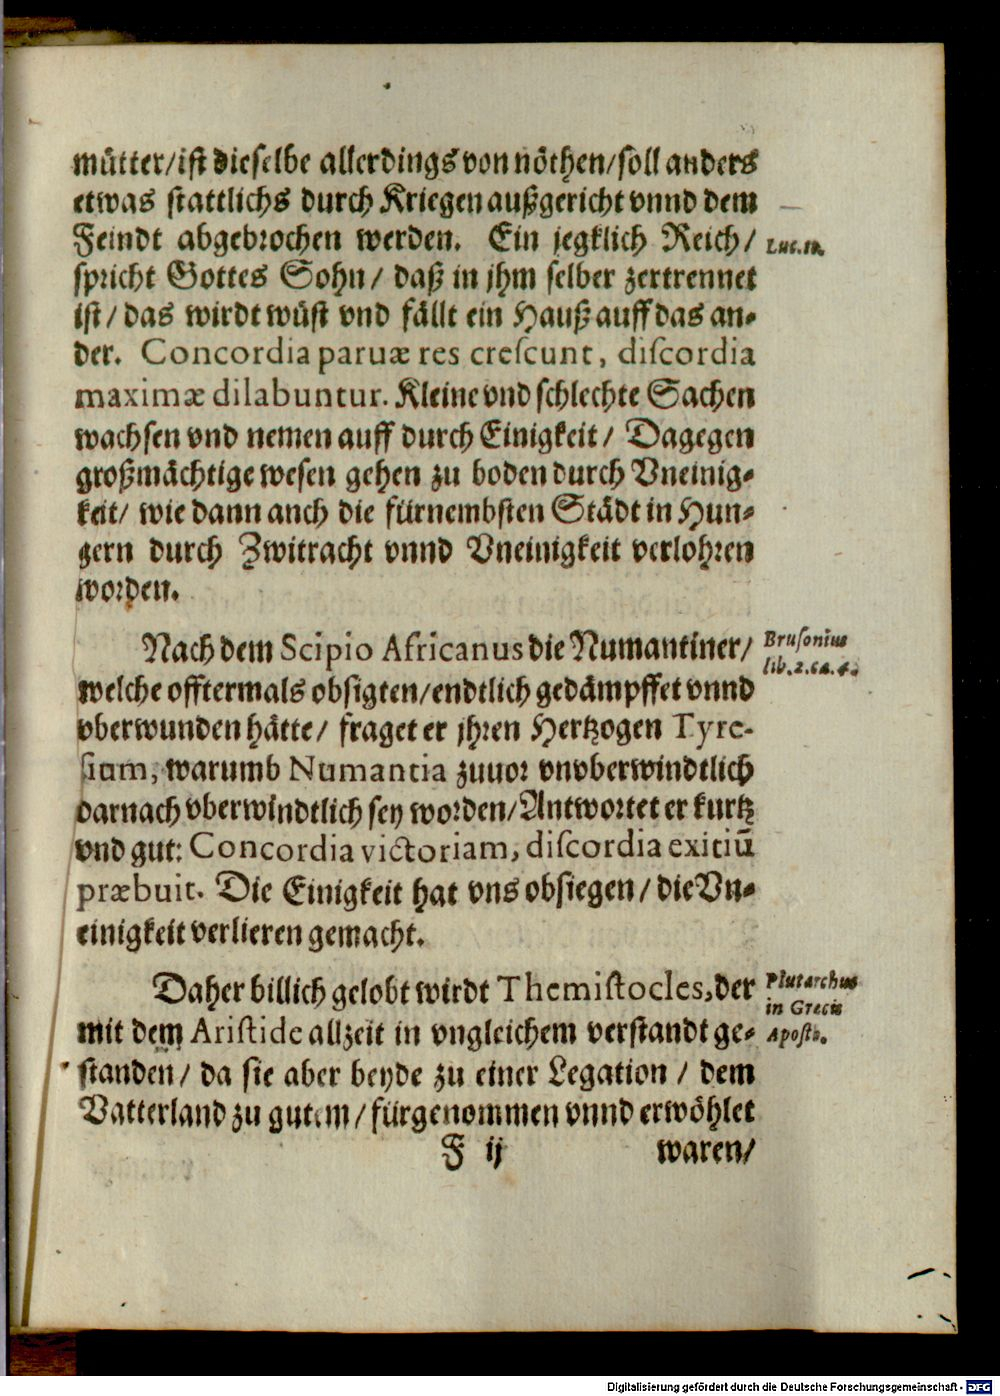 mütter/ist dieselbe allerdings von nöthen/soll anders
etwas stattlichs durch Kriegen außgericht vnnd dem
Feindt abgebrochen werden. Ein jegklich Reich/
spricht Gottes Sohn/ daß in jhm selber zertrennet
ist/ das wirdt wüst vnd fällt ein Hauß auff das an-
der. Concordia paruæ res crescunt, discordia
maximæ dilabuntur. Kleine vnd schlechte Sachen
wachsen vnd nemen auff durch Einigkeit/ Dagegen
großmächtige wesen gehen zu boden durch Vneinig-
keit/ wie dann auch die fürnembsten Städt in Hun-
gern durch Zwitracht vnnd Vneinigkeit verlohren
worden.
Nach dem Scipio Africanus die Numantiner/
Brusonius
lib.2.ca.4.
welche offtermals obsigten/endtlich gedämpffet vnnd
vberwunden hätte/ fraget er jhren Hertzogen Tyre-
sium, warumb Numantia zuuor vnvberwindtlich
darnach vberwindtlich sey worden/Antwortet er kurtz
vnd gut: Concordia victoriam, discordia exitiū
præbuit. Die Einigkeit hat vns obsiegen/ die Vn-
einigkeit verlieren gemacht.
Daher billich gelobt wirdt Themistocles, der
Plutarchus
in Grecis
mit dem Aristide allzeit in vngleichem verstandt ge-
standen/ da sie aber beyde zu einer Legation / dem
Vatterland zu gutem/ fürgenommen vnnd erwöhlet
F ij
waren/
Digitalisierung gefördert durch die Deutsche Forschungsgemeinschaft - DFG